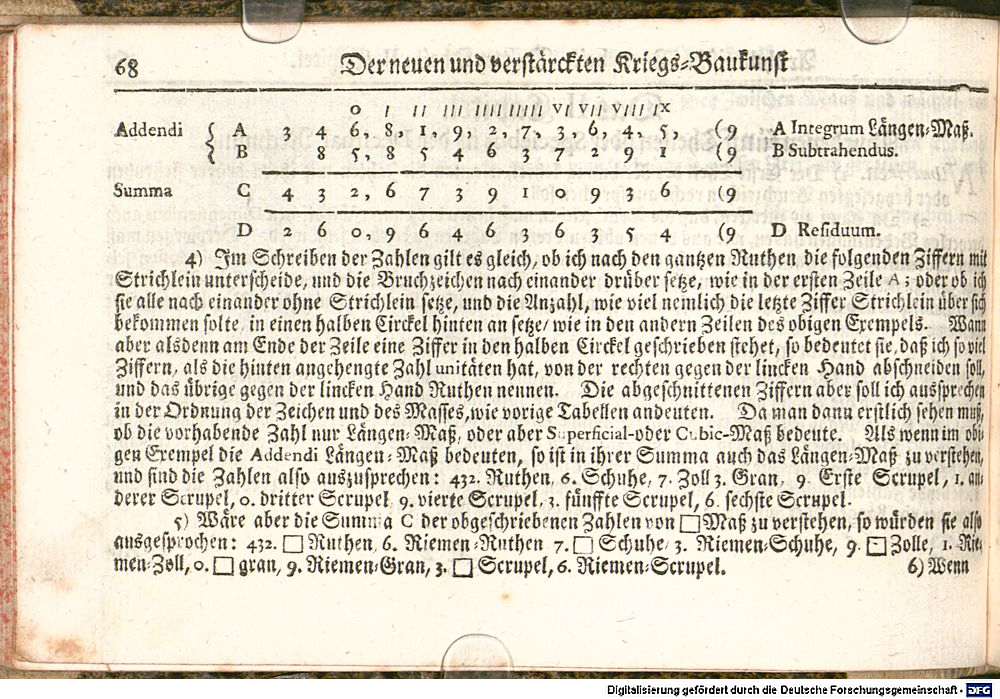 68 Der neuen und verstärckten Kriegs-Baukunst
0 I II III IIII IIIII VI VII VIII X
Addendi { A 3 4 6, 8, 1, 9, 2, 7, 3, 6, 4, 5, (9 A Integrum Längen-Maß.
B 8 5, 8 5 4 6 3 7 2 9 1 (9 B Subtrahendus.
Summa C 4 3 2, 6 7 3 9 1 0 9 3 6 (9
D 2 6 0, 9 6 4 6 3 6 3 5 4 (9 D Residuum.
4) Im Schreiben der Zahlen gilt es gleich, ob ich nach den gantzen Ruthen die folgenden Ziffern mit
Strichlein unterscheide, und die Bruchzeichen nach einander drüber setze, wie in der ersten Zeile A; oder ob ich
sie alle nach einander ohne Strichlein setze, und die Anzahl, wie viel nemlich die letzte Ziffer Strichlein über sich
bekommen solte, in einen halben Circkel hinten an setze/ wie in den andern Zeilen des obigen Exempels. Wann
aber alsdenn am Ende der Zeile eine Ziffer in den halben Circkel geschrieben stehet, so bedeutet sie, daß ich so viel
Ziffern, als die hinten angehengte Zahl unitäten hat, von der rechten gegen der lincken Hand abschneiden soll,
und das übrige gegen der lincken Hand Ruthen nennen. Die abgeschnittenen Ziffern aber soll ich aussprechen
in der Ordnung der Zeichen und des Masses, wie vorige Tabellen andeuten. Da man dann erstlich sehen muß,
ob die vorhabende Zahl nur Längen-Maß, oder aber Superficial- oder Cubic-Maß bedeute. Als wenn im obi-
gen Exempel die Addendi Längen-Maß bedeuten, so ist in ihrer Summa auch das Längen-Maß zu verstehen,
und sind die Zahlen also auszusprechen: 432. Ruthen, 6. Schuhe, 7. Zoll 3. Gran, 9. Erste Scrupel, 1. an-
derer Scrupel, 0. dritter Scrupel, 9. vierte Scrupel, 3. fünffte Scrupel, 6. sechste Scrupel.
5) Wäre aber die Summa C der obgeschriebenen Zahlen von □ Maß zu verstehen, so würden sie also
ausgesprochen: 432. □ Ruthen, 6. Riemen-Ruthen 7. □ Schuhe/ 3. Riemen-Schuhe, 9. □ Zolle, 1. Rie-
men-Zoll, 0. □ gran, 9. Riemen-Gran, 3. □ Scrupel, 6. Riemen-Scrupel. 6) Wenn
Digitalisierung gefördert durch die Deutsche Forschungsgemeinschaft - DFG